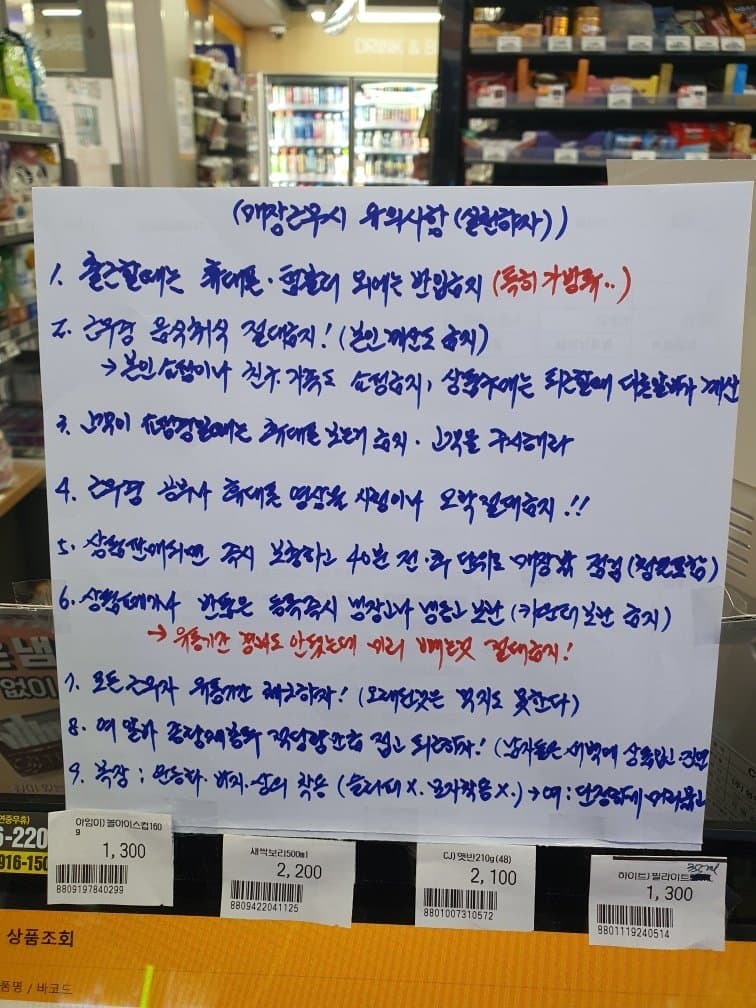 DRINK & B
(매장근무시 유의사항 (실천하자))
1. 출근할때는 휴대폰·헙찰터 외에는 반입금지 (특히 가방류..)
2. 근무중 음식취식 절대금지! (본인계산도 금지)
→ 본인쇼핑이나 친구·가족도 쇼핑금지, 상품구매는 퇴근할때 다른알바가 계산
3. 고객이 쇼핑중일때는 휴대폰 보는거 금지. 고객을 주시해라
4. 근무중 공부나 휴대폰 영상을 시청이나 오락절대금지!!
5. 상품판매되면 즉시 보충하고 40분 전·후 단위로 매장 점검 (청결포함)
6. 상품폐기나 반품은 등록즉시 냉장고나 냉동고 보관 (카운터보관 금지)
→ 유통기간 경과도 안됐는데 미리 빼는것 절대금지!
7. 모든 근무자 유통기간 체크하자! (오래된것은 먹지도 못한다)
8. 여 알바 종량제봉투 적당량만큼 접고 퇴근하자! (남자들은 새벽에 상품입고 전면
9. 복장 : 운동화·바지·상의 착용 (슬리퍼 X. 모자착용 X.) → 여 : 단정하게 머리묶고
연중무휴)
6-220
916-150
아임이)볼아이스컵160g
1,300
8809197840299
새싹보리500ml
2,200
8809422041125
CJ)햇반210g(48)
2,100
8801007310572
하이트)필라이트
1,300
8801119240514
상품조회
품명 / 바코드